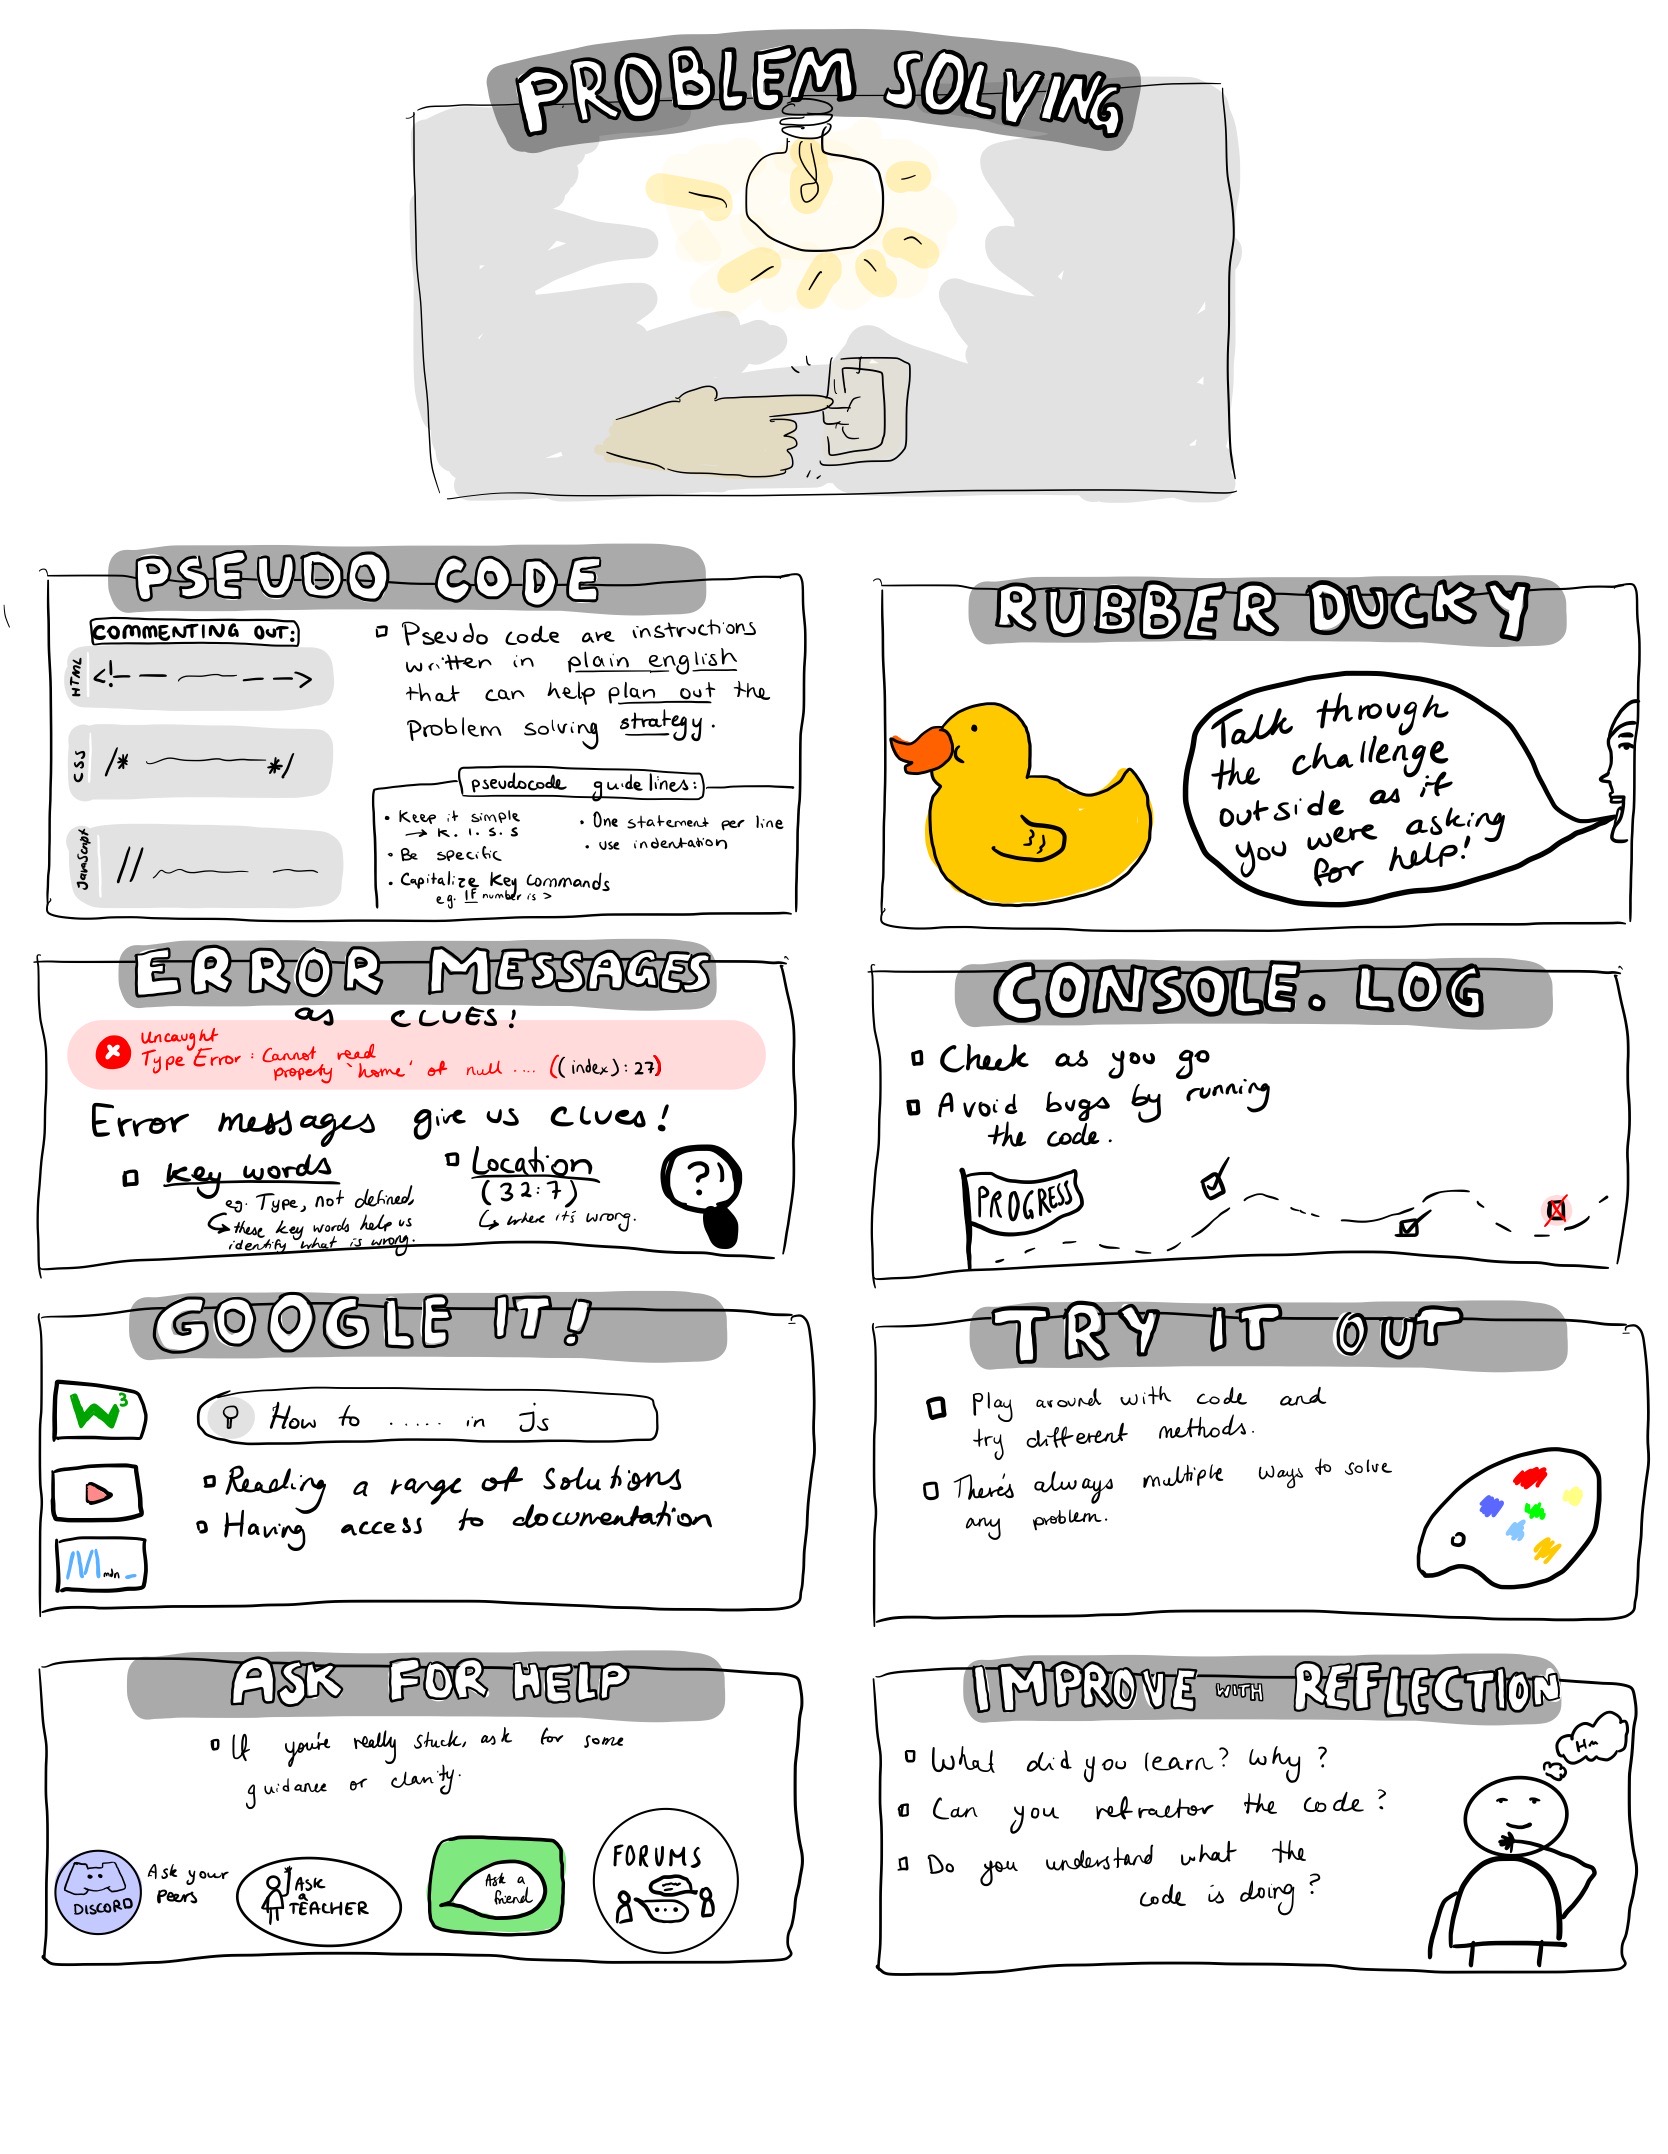 PROBLEM SOLVING
PSEUDO CODE
COMMENTING OUT:
HTML
<!-- -->
CSS
/* */
JavaScript
//
Pseudo code are instructions
written in plain english
that can help plan out the
Problem solving strategy.
pseudocode guidelines:
• Keep it simple
→ K. I. S. S
• Be specific
• Capitalize Key Commands
e.g. IF number is >
• One statement per line
• use indentation
RUBBER DUCKY
Talk through
the challenge
outside as if
you were asking
for help!
ERROR MESSAGES
as CLUES!
Uncaught
Type Error: Cannot read
property 'home' of null .... ((index):27)
Error messages give us clues!
Key words
eg. Type, not defined,
these key words help us
identify what is wrong.
Location
(32:7)
where it's wrong.
?
CONSOLE.LOG
Check as you go
Avoid bugs by running
the code.
PROGRESS
GOOGLE IT!
W3
mdn_
How to ..... in js
Reading a range of Solutions
Having access to documentation
TRY IT OUT
Play around with code and
try different methods.
There's always multiple ways to solve
any problem.
ASK FOR HELP
If you're really stuck, ask for some
guidance or clarity.
DISCORD
Ask your
peers
ASK
a
TEACHER
Ask a
friend
FORUMS
IMPROVE WITH REFLECTION
What did you learn? Why?
Can you refractor the code?
Do you understand what the
code is doing?
Hm